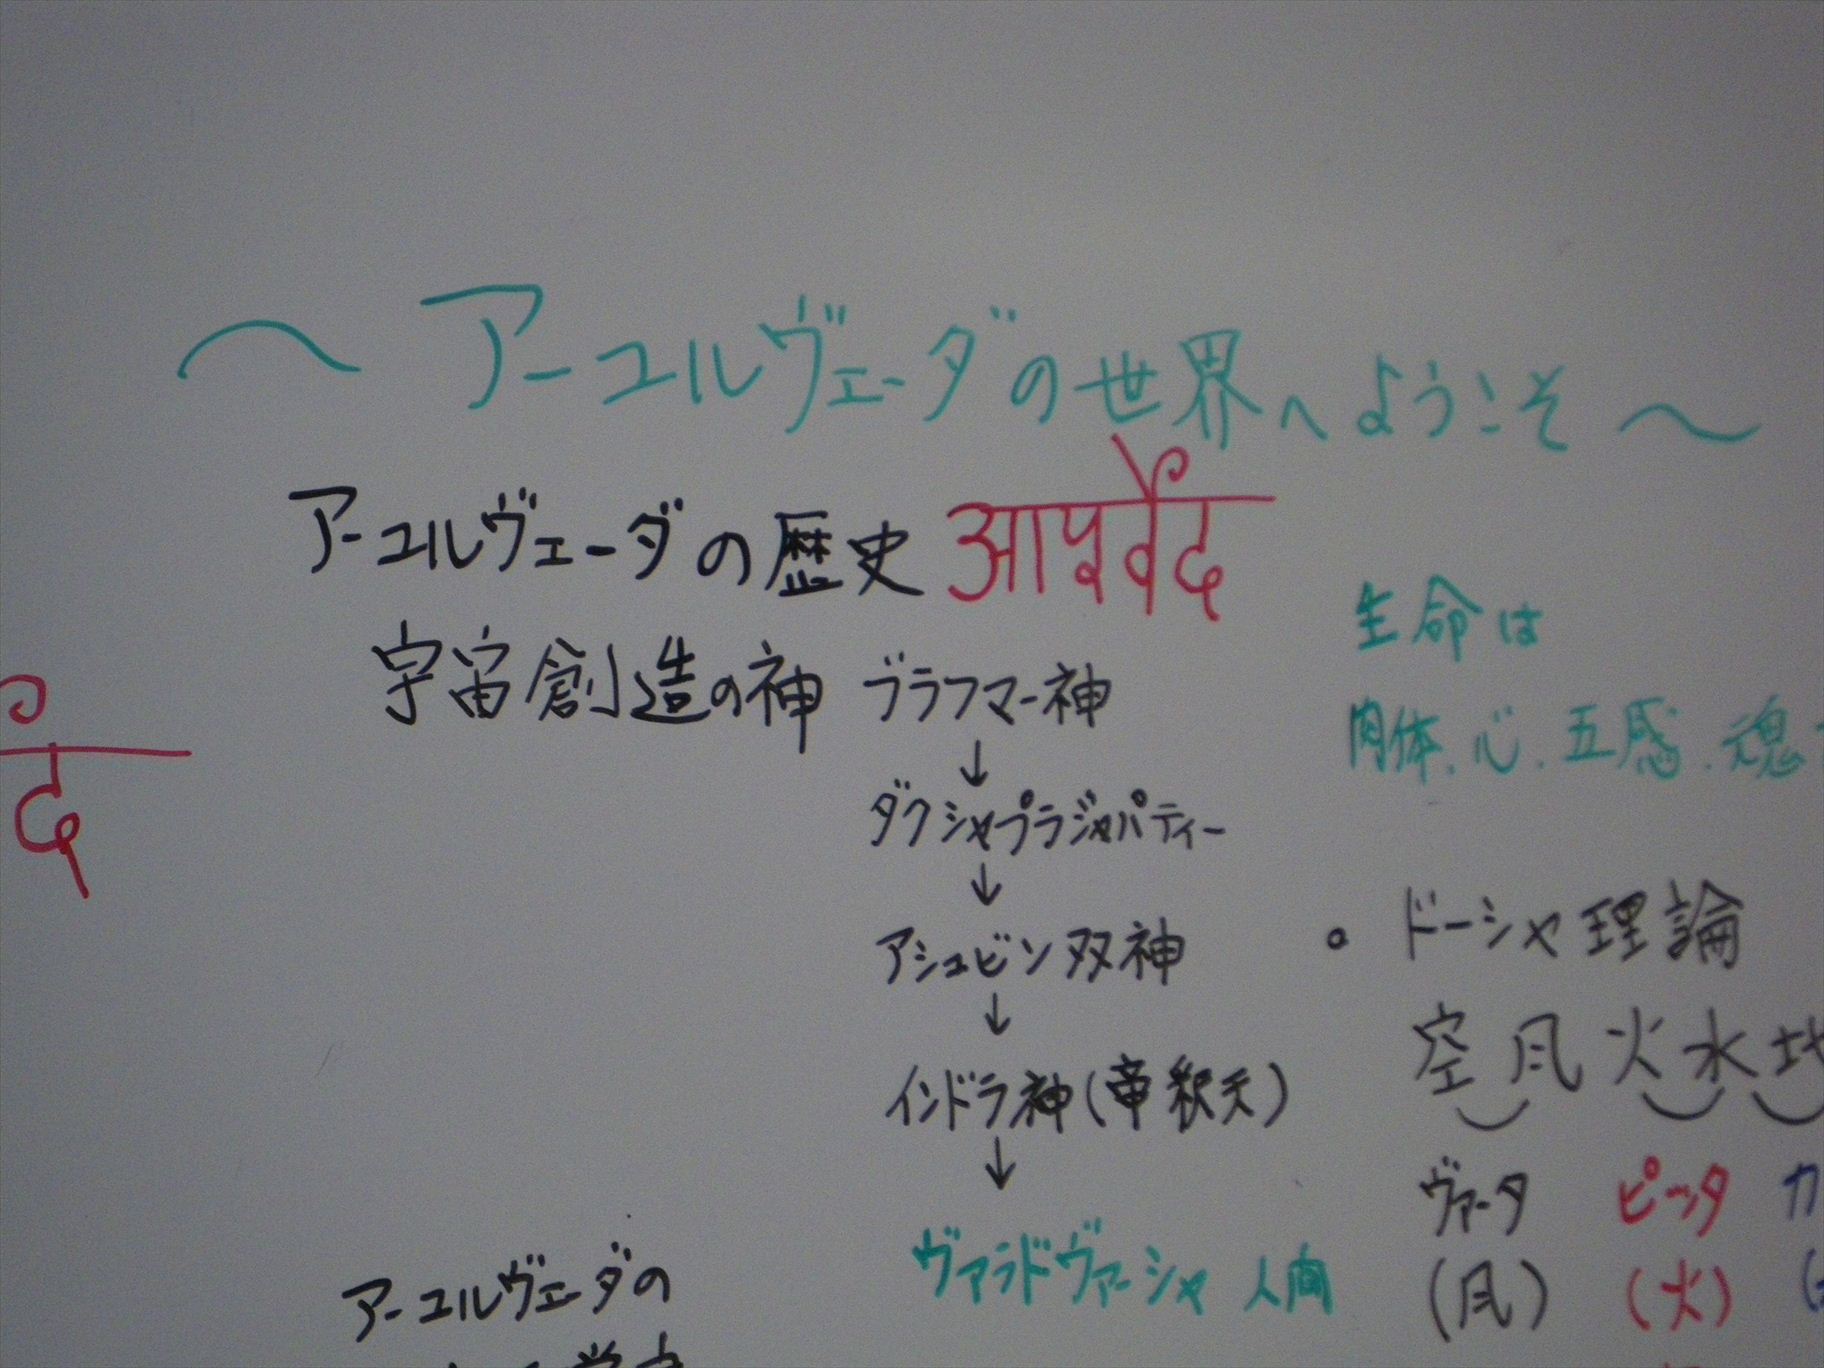 〜アーユルヴェーダの世界へようこそ〜
アーユルヴェーダの歴史 आयुर्वेद
宇宙創造の神 ブラフマー神
↓
ダクシャプラジャパティー
↓
アシュビン双神
↓
インドラ神(帝釈天)
↓
ヴァラドヴァージャ 人間
アーユルヴェーダの
द
生命は
肉体、心、五感、魂
。ドーシャ理論
空風火水地
ヴァータ ピッタ カ
(風) (火)